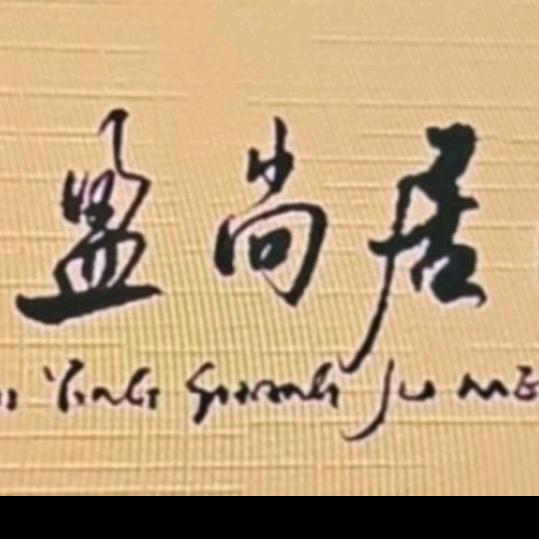 盈尚居
Ying Shang Ju